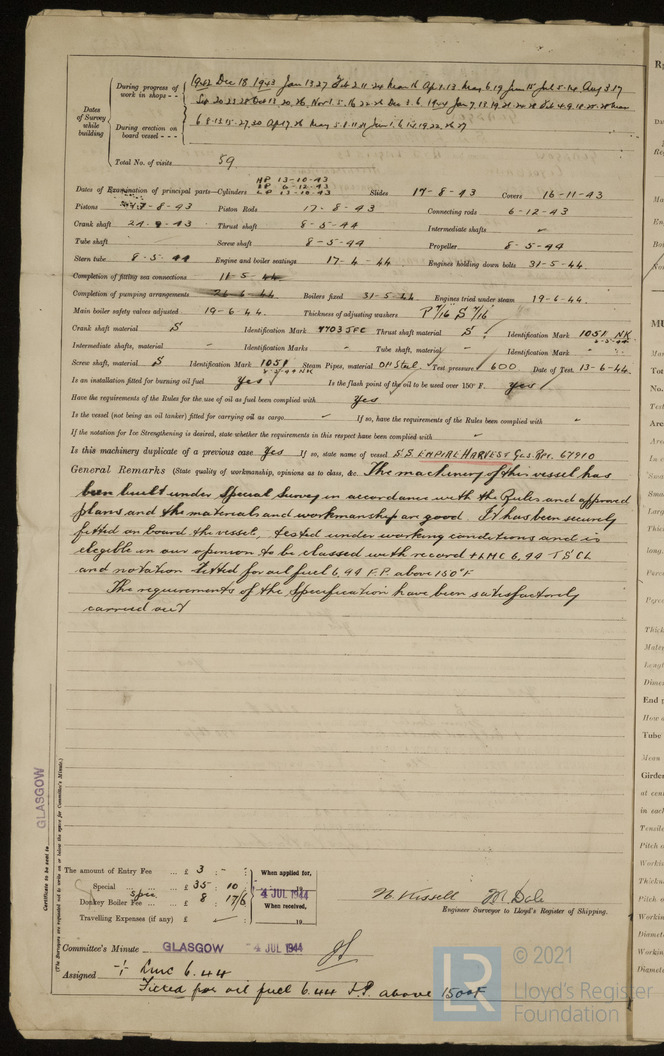 Dates of Survey while building
During progress of work in shops - -
1942 Dec 18 1943 Jan 13 27 Feb 2 11 24 Mar 16 Apr 1 13 May 6 19 Jun 15 Jul 5 14 Aug 3 17
Sep 20 23 28 Oct 13 20 26 Nov 1 5 16 22 Dec 3 6 1944 Jan 7 13 19 Feb 4 9 18
During erection on board vessel - - -
6 8 13 15 27 30 Apr 17 May 5 8 11 Jun 1 6 14 19 22 27
Total No. of visits 59
HP 13-10-43
IP 6-12-43
Dates of Examination of principal parts—Cylinders LP 13-10-43 Slides 17-8-43 Covers 16-11-43
Pistons 17-8-43 Piston Rods 17-8-43 Connecting rods 6-12-43
Crank shaft 24-9-43 Thrust shaft 8-5-44 Intermediate shafts -
Tube shaft - Screw shaft 8-5-44 Propeller 8-5-44
Stern tube 8-5-44 Engine and boiler seatings 17-4-44 Engines holding down bolts 31-5-44.
Completion of fitting sea connections 11-5-44
Completion of pumping arrangements 26-6-44 Boilers fixed 31-5-44 Engines tried under steam 19-6-44.
Main boiler safety valves adjusted 19-6-44. Thickness of adjusting washers P 7/16 S 7/16
Crank shaft material S Identification Mark 7703 JFC Thrust shaft material S Identification Mark 1051 NK
8-5-44
Intermediate shafts, material - Identification Marks - Tube shaft, material - Identification Mark -
Screw shaft, material S Identification Mark 1051 Steam Pipes, material OH Steel Test pressure 600 Date of Test 13-6-44.
8-5-44 NK
Is an installation fitted for burning oil fuel Yes Is the flash point of the oil to be used over 150° F. yes
Have the requirements of the Rules for the use of oil as fuel been complied with Yes
Is the vessel (not being an oil tanker) fitted for carrying oil as cargo - If so, have the requirements of the Rules been complied with -
If the notation for Ice Strengthening is desired, state whether the requirements in this respect have been complied with -
Is this machinery duplicate of a previous case Yes If so, state name of vessel S.S. EMPIRE HARVEST GLS. RPT. 67910
General Remarks (State quality of workmanship, opinions as to class, &c. The machinery of this vessel has
been built under Special Survey in accordance with the Rules and approved
plans and the materials and workmanship are good. It has been securely
fitted on board the vessel, tested under working conditions and is
elegible in our opinion to be classed with record + LMC 6,44 T S CL
and notation fitted for oil fuel 6,44 F.P. above 150°F
The requirements of the Specification have been satisfactorily
carried out
GLASGOW
Certificate to be sent to
(The Surveyors are requested not to write on or below the space for Committee's Minute.)
The amount of Entry Fee ... £ 3 : - :
Special ... £ 35 : 10
Spec
Donkey Boiler Fee ... £ 8 : 17/6
Travelling Expenses (if any) £
When applied for,
4 JUL 1944
When received,
19
N. Kissell J R Dale
Engineer Surveyor to Lloyd's Register of Shipping.
Committee's Minute GLASGOW 4 JUL 1944
Assigned + LMC 6.44
Fitted for oil fuel 6.44 F.P. above 150°F
© 2021
LR
Lloyd's Register
Foundation